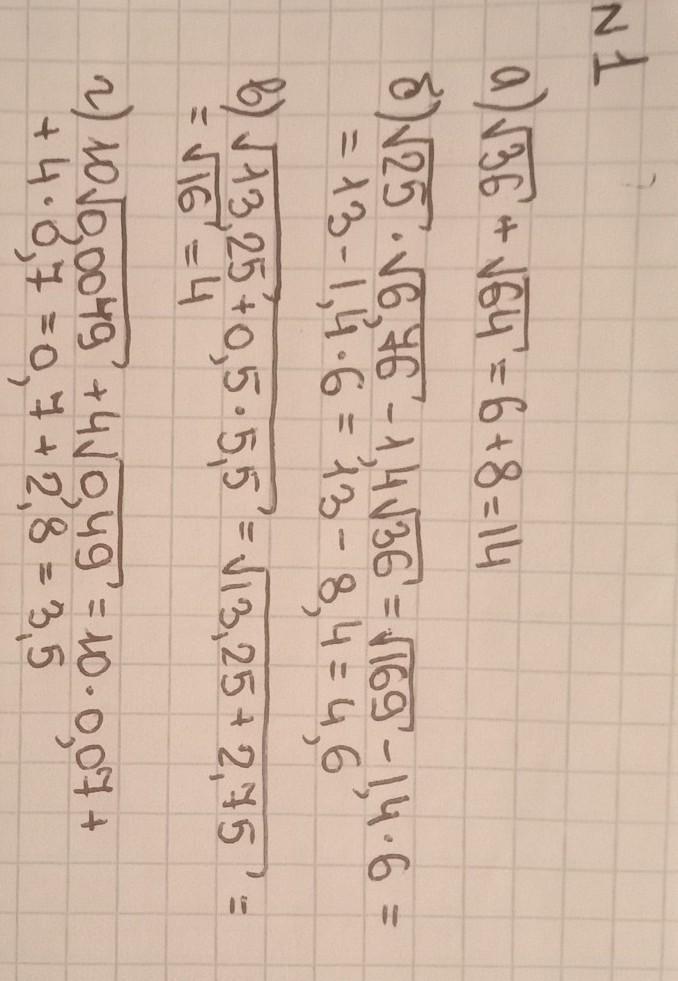 N 1
а) √36 + √64 = 6 + 8 = 14
б) √25 · √6,76 - 1,4√36 = √169 - 1,4 · 6 =
= 13 - 1,4 · 6 = 13 - 8,4 = 4,6
в) √13,25 + 0,5 · 5,5 = √13,25 + 2,75 =
= √16 = 4
г) 10√0,0049 + 4√0,49 = 10 · 0,07 +
+ 4 · 0,7 = 0,7 + 2,8 = 3,5